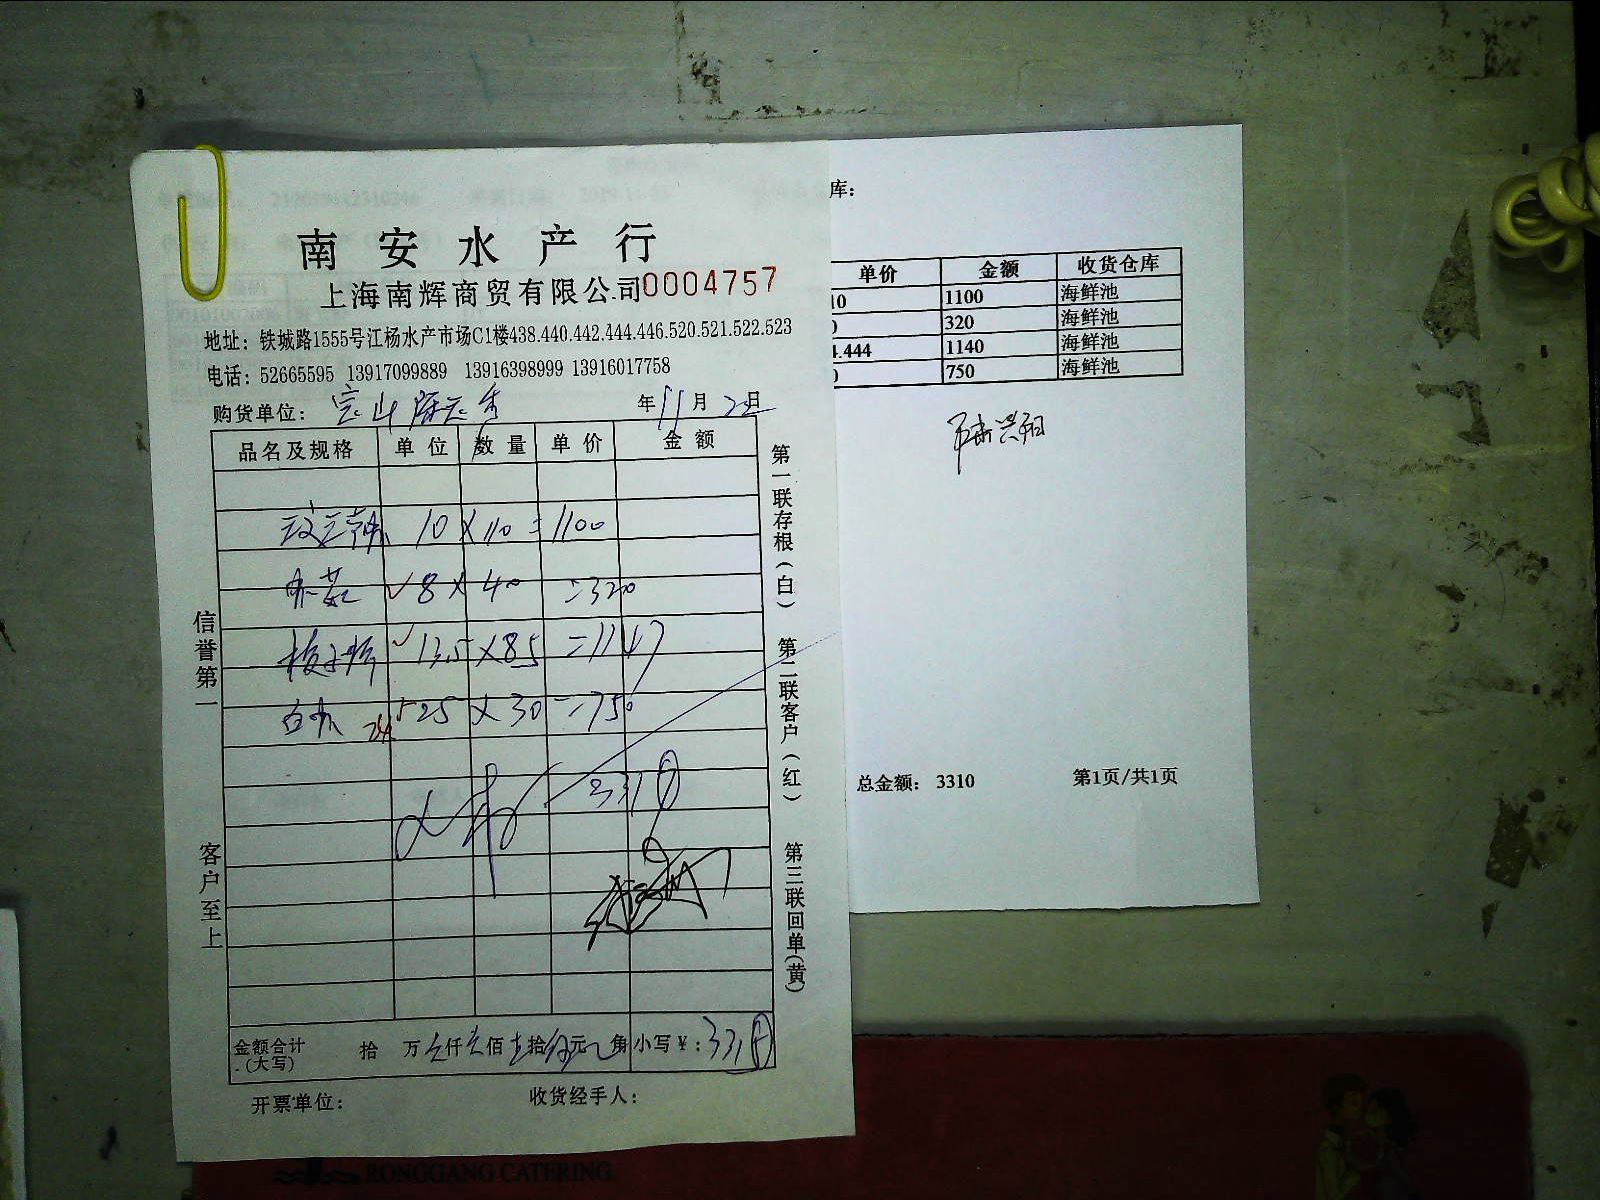 南安水产行
上海南辉商贸有限公司0004757
地址：铁城路1555号江杨水产市场C1楼438.440.442.444.446.520.521.522.523
电话：52665595 13917099889 13916398999 13916017758
购货单位： 宝山 年11月22日
品名及规格 单位 数量 单价 金额
10 X 110 = 1100
8 X 40 = 320
13.5 X 85 = 1147
白 25 X 30 = 750
331
金额合计 拾 万 仟 佰 拾 元 角 小写￥：331
(大写)
开票单位： 收货经手人：
信誉第一
客户至上
第一联存根(白) 第二联客户(红) 第三联回单(黄)
库：
单价 金额 收货仓库
10 1100 海鲜池
0 320 海鲜池
4.444 1140 海鲜池
0 750 海鲜池
总金额： 3310 第1页/共1页
RONGGANG CATERING